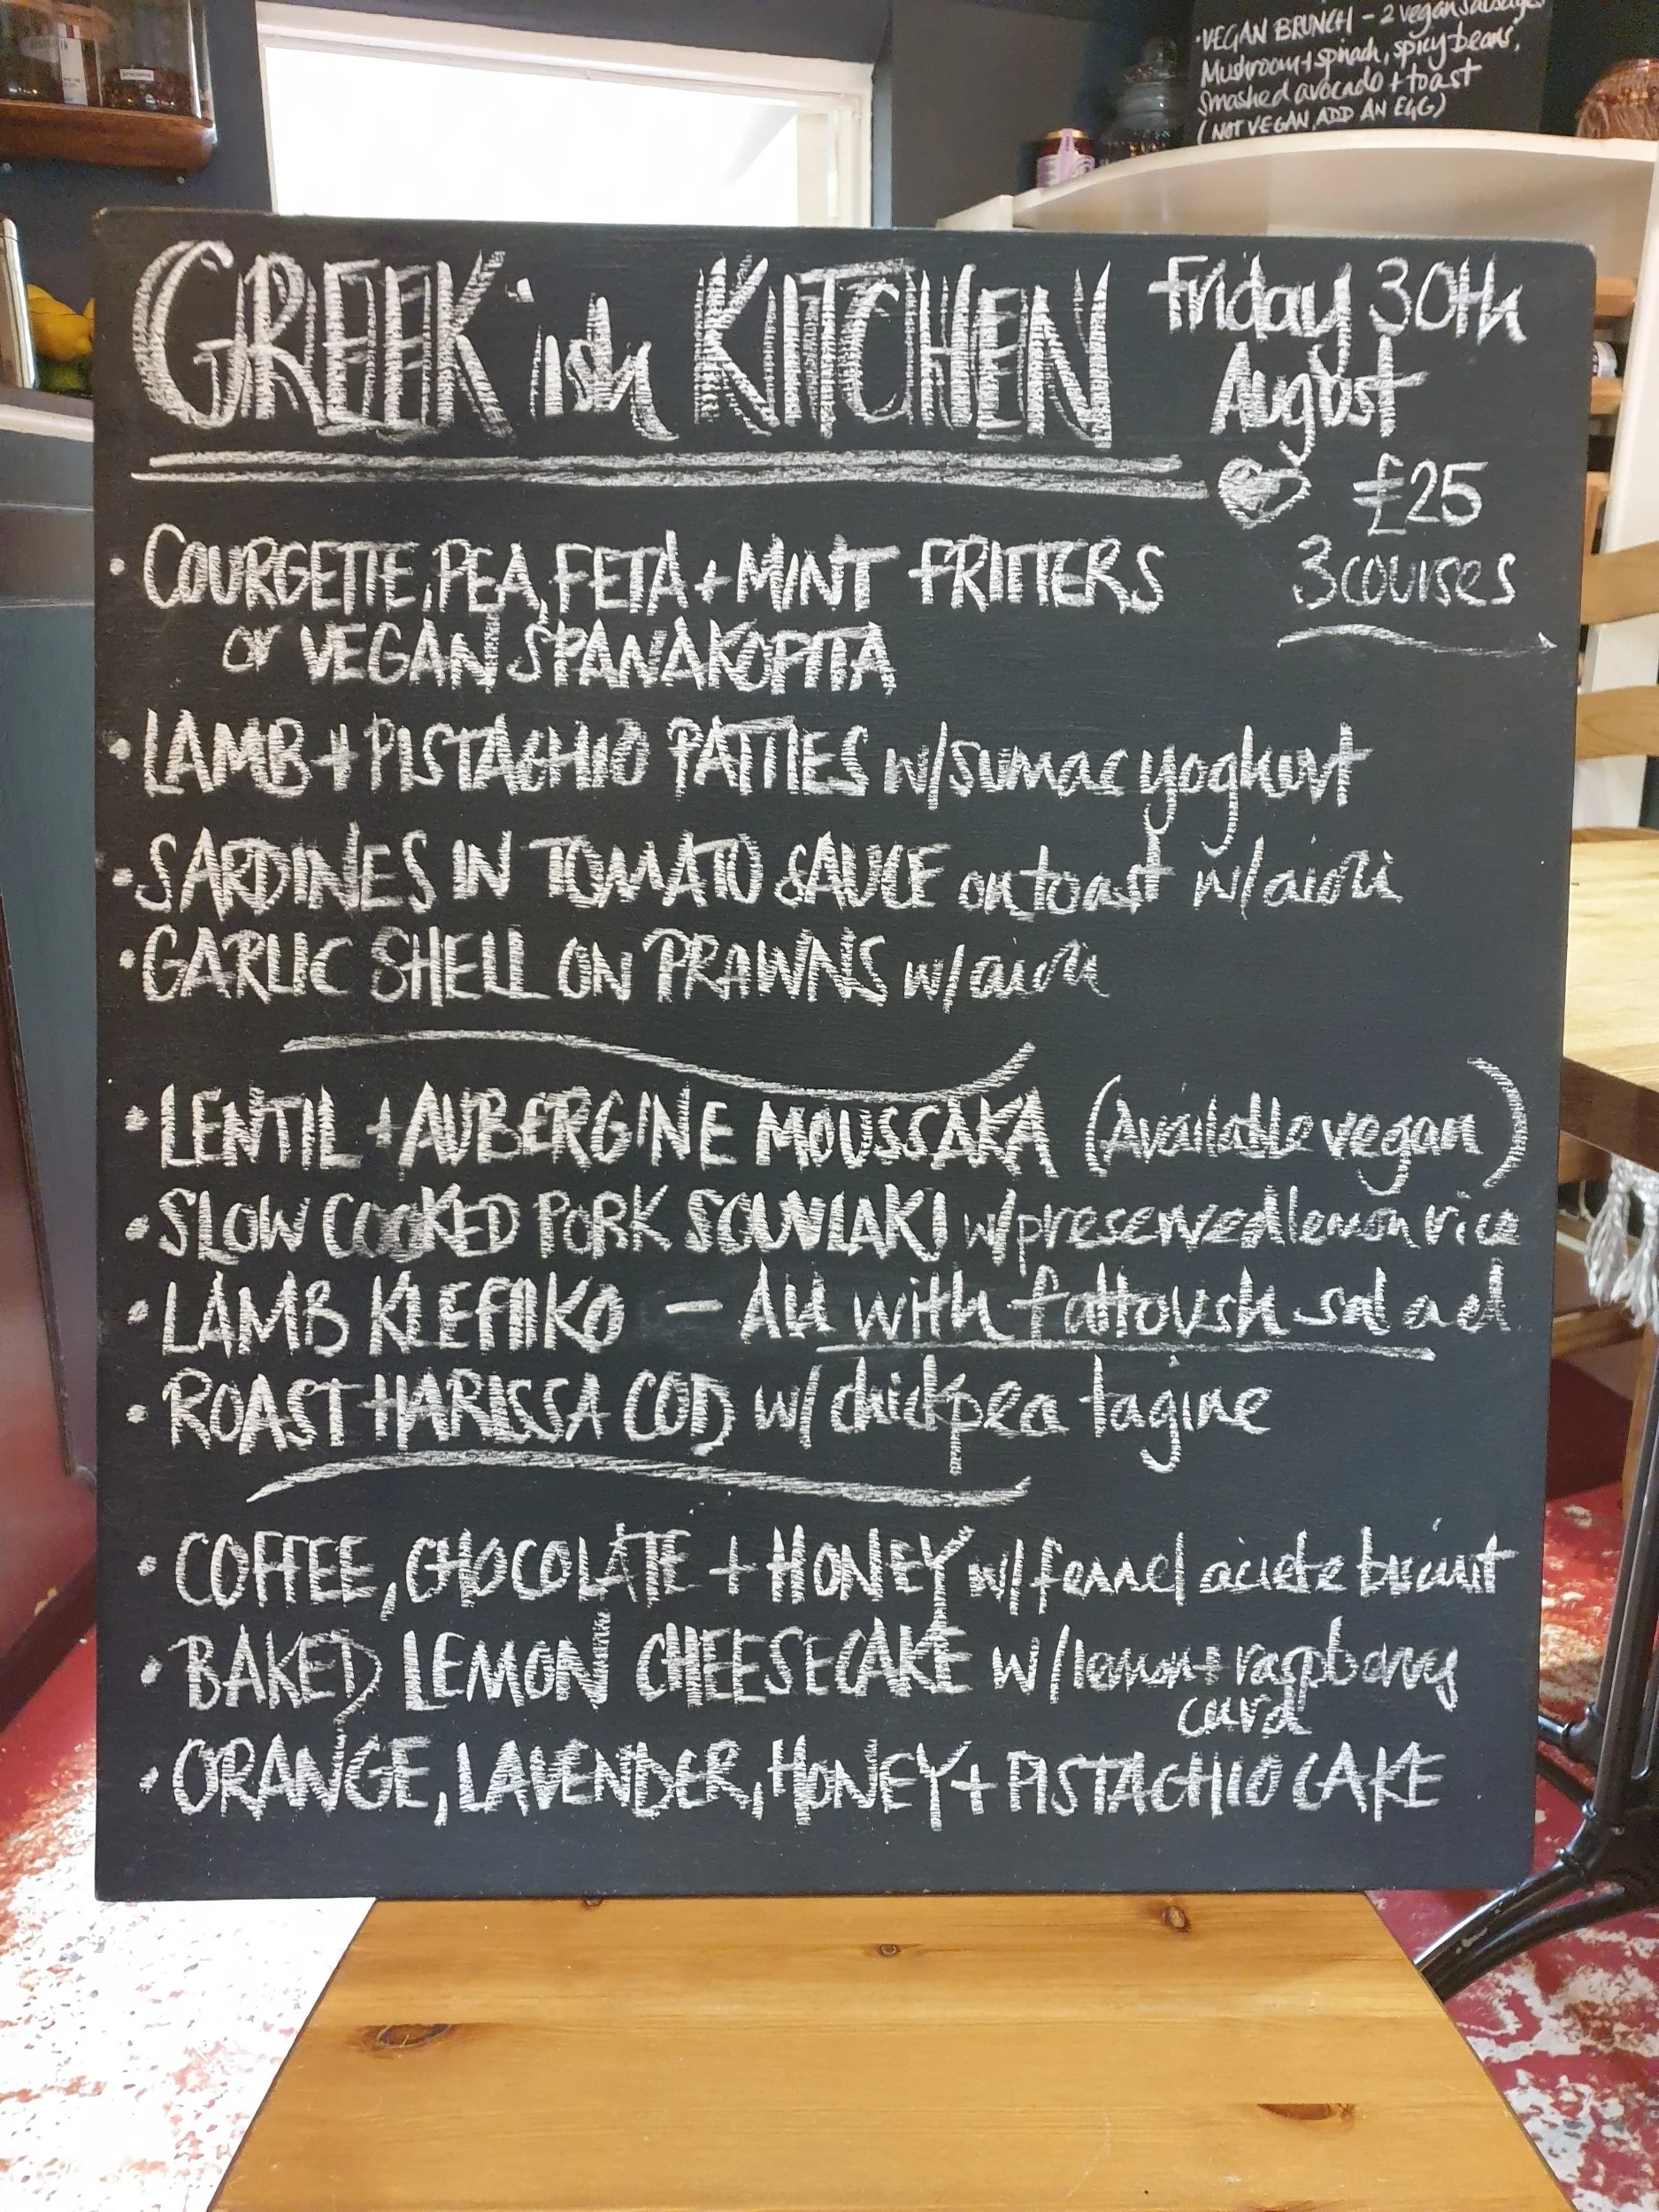 ·VEGAN BRUNCH - 2 vegan sausages
Mushroom + spinach, spicy beans,
Smashed avocado + toast
(NOT VEGAN, ADD AN EGG)
GREEK'ish KITCHEN
Friday 30th
August
£25
3 courses
· COURGETTE, PEA, FETA + MINT FRITTERS
or VEGAN SPANAKOPITA
· LAMB + PISTACHIO PATTIES w/sumac yoghurt
· SARDINES IN TOMATO SAUCE on toast w/aioli
· GARLIC SHELL ON PRAWNS w/aioli
· LENTIL + AUBERGINE MOUSSAKA (Available vegan)
· SLOW COOKED PORK SOUVLAKI w/preserved lemon rice
· LAMB KLEFTIKO - All with fattoush salad
· ROAST HARISSA COD w/ chickpea tagine
· COFFEE, CHOCOLATE + HONEY w/ fennel biscuit
· BAKED LEMON CHEESECAKE w/ lemon + raspberry
curd
· ORANGE, LAVENDER, HONEY + PISTACHIO CAKE